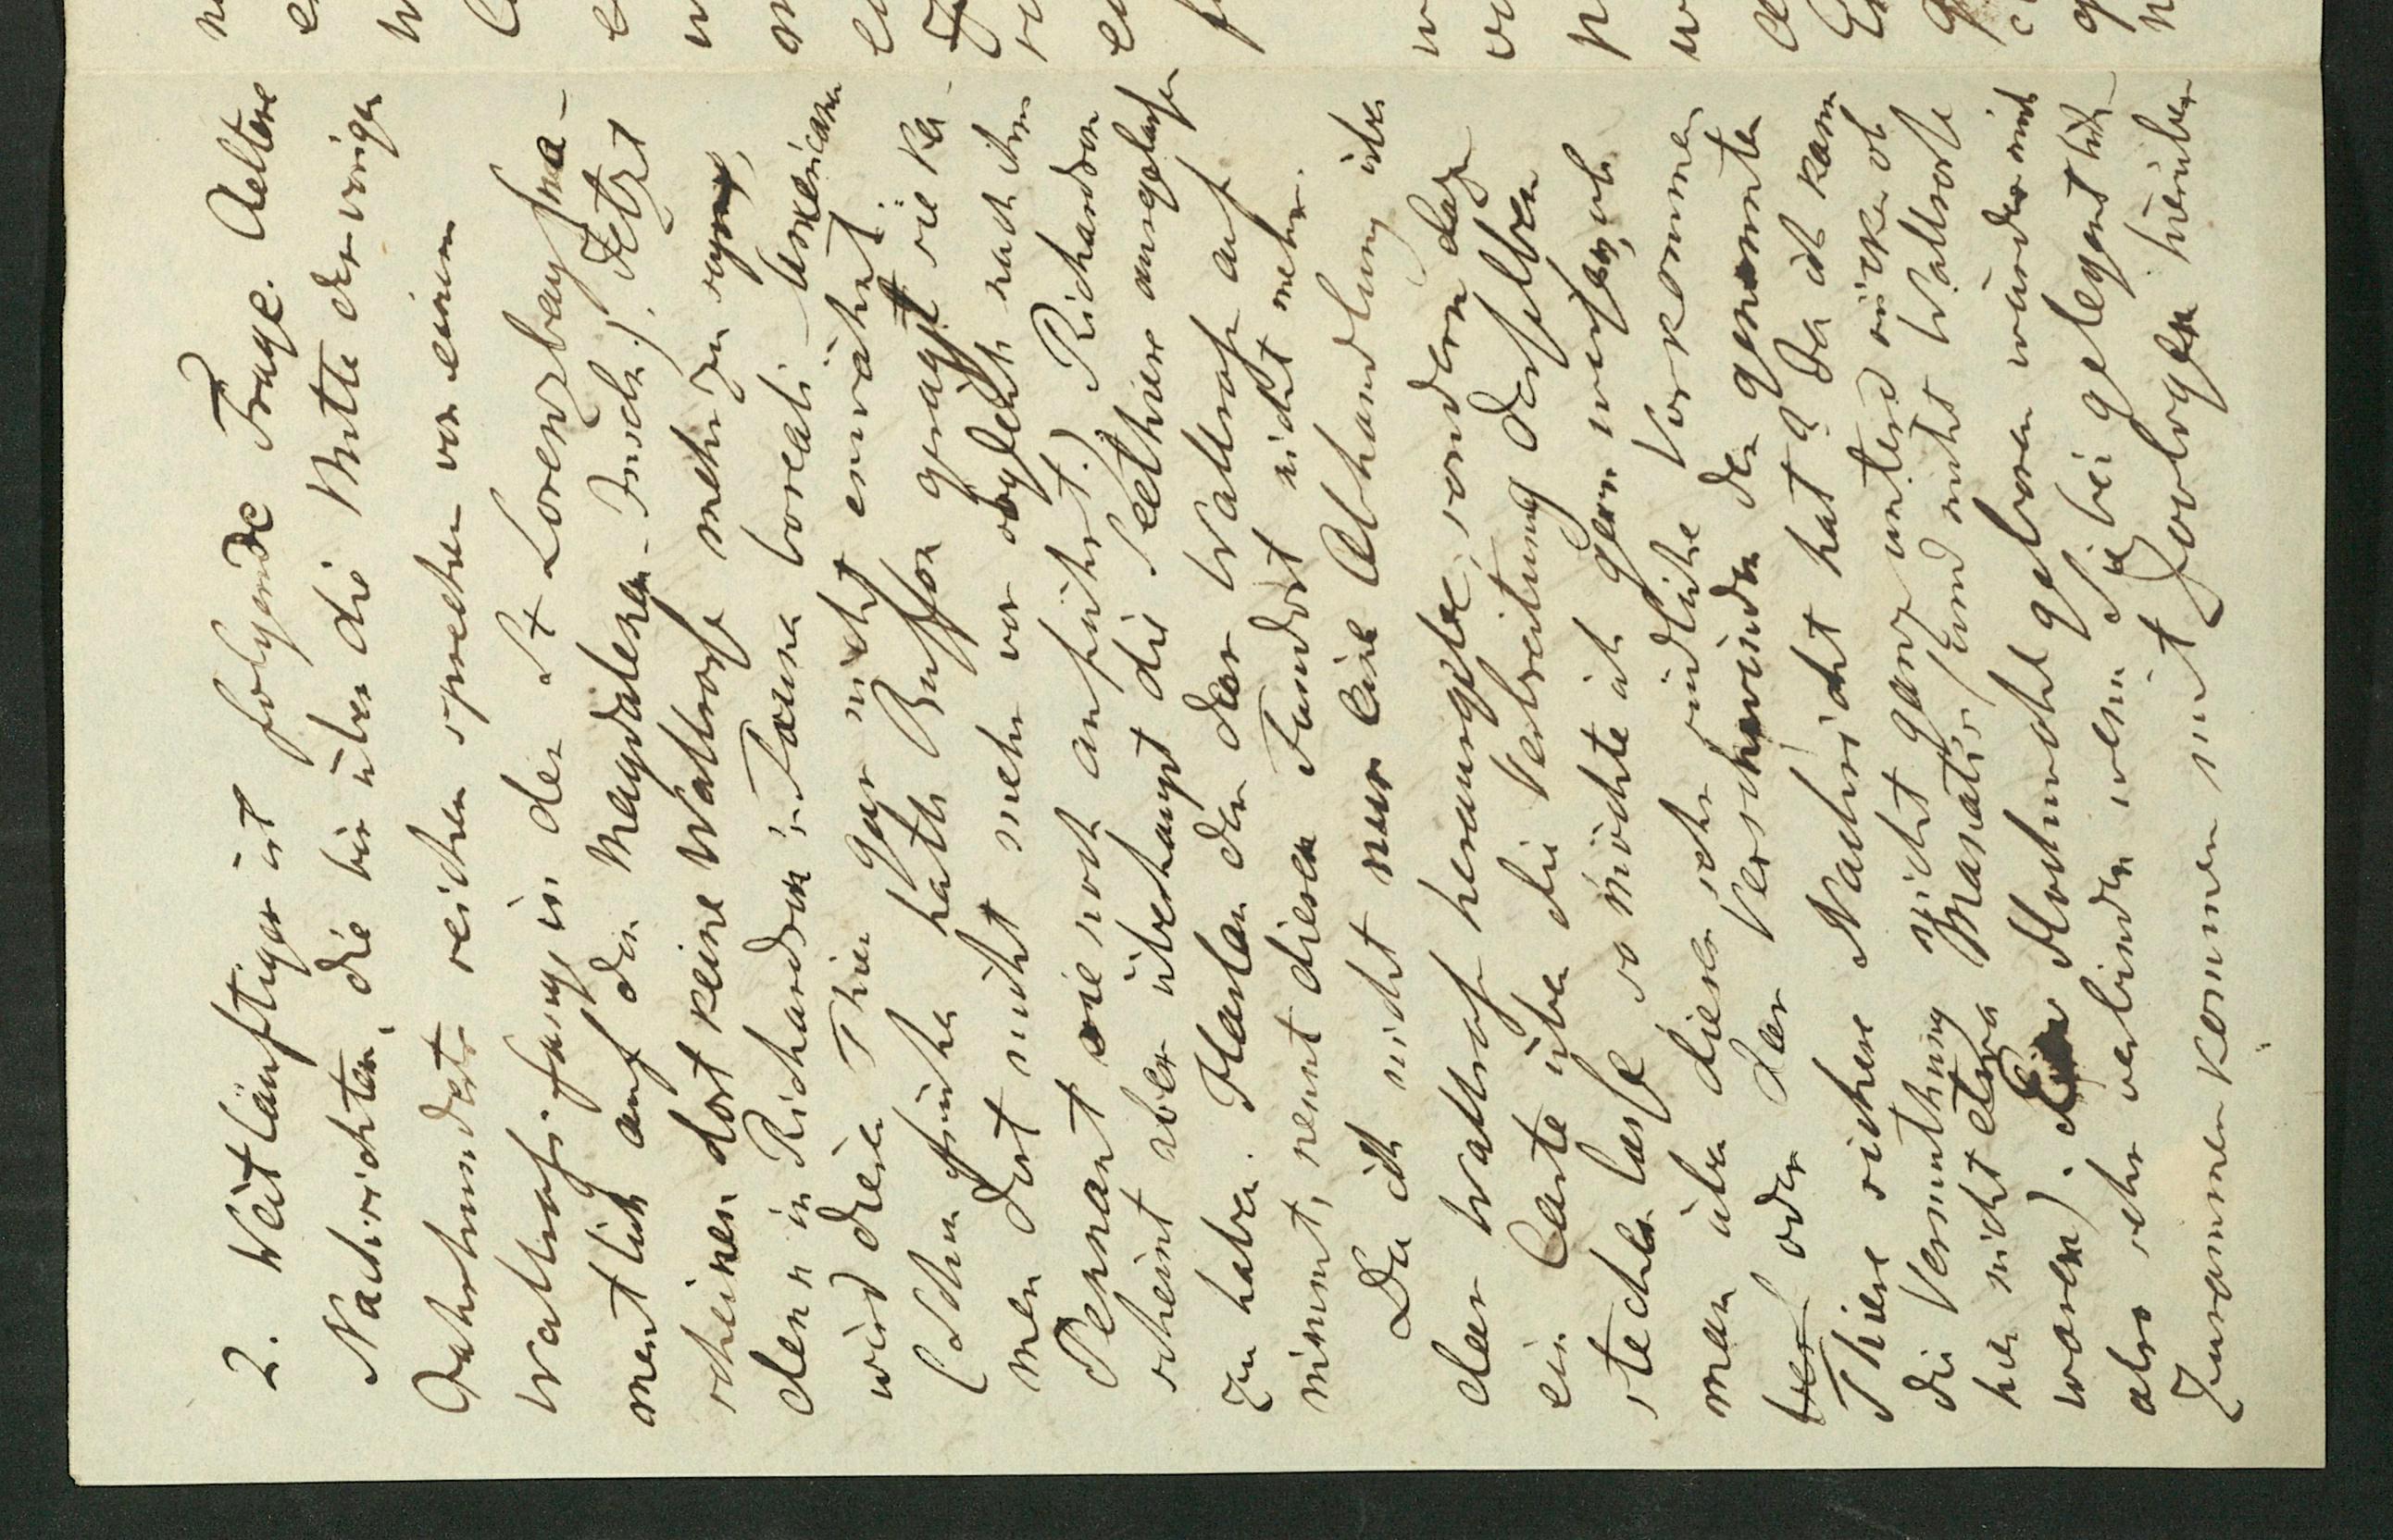 2. Weitläuftiger ist folgende Frage. Aeltere
Nachrichten, die bis über die Mitte des vorigen
Jahrhunderts reichen sprechen von einem
Wallroßfange in der St Lorenzbay /na-
mentlich auf den Magdalenen-Inseln). Jetzt
scheinen dort keine Wallrosse mehr zu seyn,
denn in Richardson's Fauna boreali-americana
wird dieses Thier gar nicht erwähnt.
(Schon früher hatte Buffon gesagt sie kä-
men dort nicht mehr vor obgleich nach ihm
Pennant sie noch anführt.) Richardson
scheint aber überhaupt die Seethiere ausgelassen
zu haben. Harlan der das Wallroß auf
nimmt, nennt diesen Fundort nicht mehr.
Da ich nicht nur eine Abhandlung über
das Wallroß herausgebe, sondern dazu
ein Carte über die Verbreitung desselben
stechen lasse so möchte ich gern wissen, ob
man über dieses sehr südliche Vorkommen
oder das Verschwinden der genannten
Thiere sichere Nachricht hat? Da ich kann
die Vermuthung nicht ganz unterdrücken ob
hier nicht etwa Manatis (und nicht Wallrosse
waren). Hochwohlgeboren würden mich
also sehr verbinden wenn Sie bei gelegentlichem
Zusammenkommen mit Zoologen hierüber